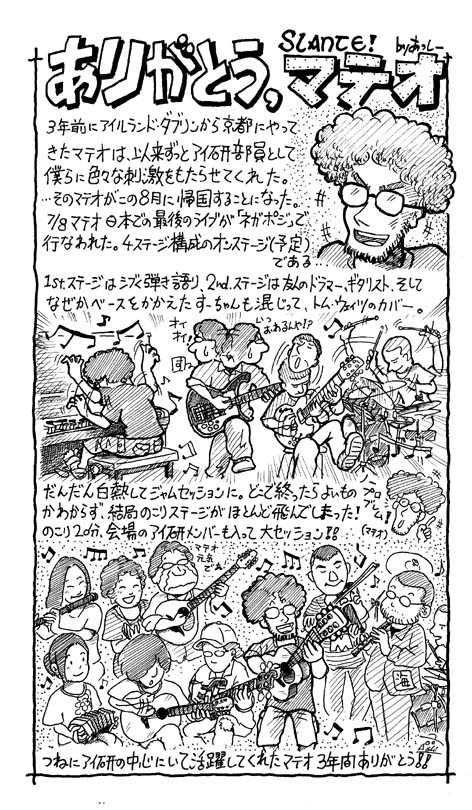 SLANTE! by あっしー
ありがとう,マテオ
3年前にアイルランド・ダブリンから京都にやって
きたマテオは、以来ずっとアイ研部員として
僕らに色々な刺激をもたらせてくれた。
…そのマテオがこの8月に帰国することになった。
7/8 マテオ日本での最後のライブが「ネガポジ」で
行なわれた。4ステージ構成のオンステージ(予定)
である…
1st.ステージはシブく弾き語り、2nd.ステージは友人のドラマー、ギタリスト、そして
なぜかベースをかかえたすーちゃんも混じって、トム・ウェイツのカバー。
オイオイ!
いつおわるんや!?
だんだん白熱してジャムセッションに。どこで終ったらよいもの
かわからず、結局のこりステージがほとんど飛んでしまった!
のこり20分、会場のアイ研メンバーも入って大セッション!!
ノープロブレム!
(マテオ)
マテオ元気でな!
海
つねにアイ研の中心にいて活躍してくれたマテオ3年間ありがとう!!